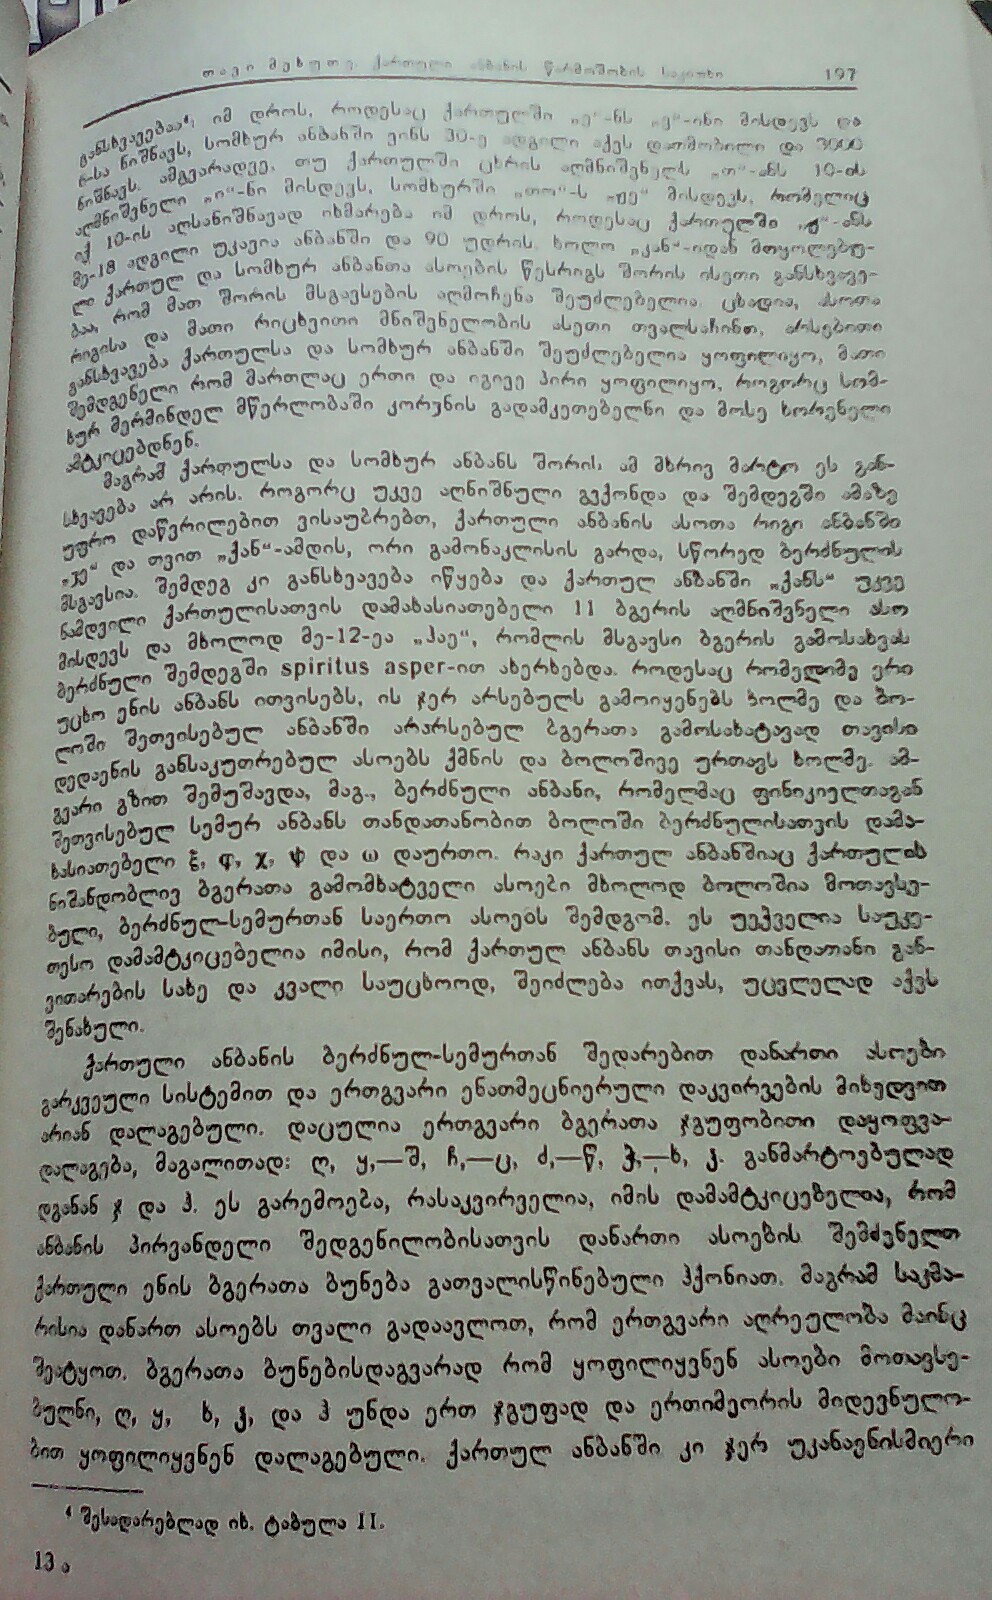 თავი მეხუთე. ქართული ანბანის წარმოშობის საკითხი 197
განსხვავებაა⁴, იმ დროს, როდესაც ქართულში „ე“-ნს „ვ“-ინი მისდევს და
6-სა ნიშნავს, სომხურ ანბანში ვინს 30-ე ადგილი აქვს დათმობილი და 3000
ნიშნავს. ამგვარადვე, თუ ქართულში ცხრის აღმნიშვნელს „თ“-ანს 10-ის
აღმნიშვნელი „ი“-ნი მისდევს, სომხურში „თო“-ს „ჟე“ მისდევს, რომელიც
იქ 10-ის აღსანიშნავად იხმარება იმ დროს, როდესაც ქართულში „ჟ“-ანს
მე-18 ადგილი უკავია ანბანში და 90 უდრის. ხოლო „კან“-იდან მოყოლებუ-
ლი ქართულ და სომხურ ანბანთა ასოების წესრიგს შორის ისეთი განსხვავე-
ბაა, რომ მათ შორის მსგავსების აღმოჩენა შეუძლებელია. ცხადია, ასოთა
რიგისა და მათი რიცხვითი მნიშვნელობის ასეთი თვალსაჩინო, არსებითი
განსხვავება ქართულსა და სომხურ ანბანში შეუძლებელია ყოფილიყო, მათი
შემდგენელი რომ მართლაც ერთი და იგივე პირი ყოფილიყო, როგორც სომ-
ხურ მერმინდელ მწერლობაში კორუნის გადამკეთებელნი და მოსე ხორენელი
ამტკიცებდნენ.
მაგრამ ქართულსა და სომხურ ანბანს შორის ამ მხრივ მარტო ეს გან-
სხვავება არ არის. როგორც უკვე აღნიშნული გვქონდა და შემდეგში ამაზე
უფრო დაწვრილებით ვისაუბრებთ, ქართული ანბანის ასოთა რიგი ანბანში
„ჲე“ და თვით „ქან“-ამდის, ორი გამონაკლისის გარდა, სწორედ ბერძნულის
მსგავსია. შემდეგ კი განსხვავება იწყება და ქართულ ანბანში „ქანს“ უკვე
ნამდვილი ქართულისათვის დამახასიათებელი 11 ბგერის აღმნიშვნელი ასო
მისდევს და მხოლოდ მე-12-ეა „ჰაე“, რომლის მსგავსი ბგერის გამოსახვას
ბერძნული შემდეგში spiritus asper-ით ახერხებდა. როდესაც რომელიმე ერი
უცხო ენის ანბანს ითვისებს, ის ჯერ არსებულს გამოიყენებს ხოლმე და ბო-
ლოში შეთვისებულ ანბანში არარსებულ ბგერათა გამოსახატავად თავისი
დედაენის განსაკუთრებულ ასოებს ქმნის და ბოლოშივე ურთავს ხოლმე. ამ-
გვარი გზით შემუშავდა, მაგ., ბერძნული ანბანი, რომელმაც ფინიკიელთაგან
შეთვისებულ სემურ ანბანს თანდათანობით ბოლოში ბერძნულისათვის დამა-
ხასიათებელი ξ, φ, χ, ψ და ω დაურთო. რაკი ქართულ ანბანშიაც ქართულის
ნიშანდობლივ ბგერათა გამომხატველი ასოები მხოლოდ ბოლოშია მოთავსე-
ბული, ბერძნულ-სემურთან საერთო ასოებს შემდგომ. ეს უეჭველია საუკე-
თესო დამამტკიცებელია იმისი, რომ ქართულ ანბანს თავისი თანდათანი გან-
ვითარების სახე და კვალი საუცხოოდ, შეიძლება ითქვას, უცვლელად აქვს
შენახული.
ქართული ანბანის ბერძნულ-სემურთან შედარებით დანართი ასოები
გარკვეული სისტემით და ერთგვარი ენათმეცნიერული დაკვირვების მიხედვით
არიან დალაგებული. დაცულია ერთგვარი ბგერათა ჯგუფობითი დაყოფვა-
დალაგება, მაგალითად: ღ, ყ,—შ, ჩ,—ც, ძ,—წ, ჭ,—ხ, ჴ. განმარტოებულად
დგანან ჯ და ჰ. ეს გარემოება, რასაკვირველია, იმის დამამტკიცებელია, რომ
ანბანის პირვანდელი შედგენილობისათვის დანართი ასოების შემძენელთ
ქართული ენის ბგერათა ბუნება გათვალისწინებული ჰქონიათ. მაგრამ საკმა-
რისია დანართ ასოებს თვალი გადაავლოთ, რომ ერთგვარი აღრეულობა მაინც
შეატყოთ. ბგერათა ბუნებისდაგვარად რომ ყოფილიყვნენ ასოები მოთავსე-
ბულნი, ღ, ყ, ხ, ჴ, და ჰ უნდა ერთ ჯგუფად და ერთიმეორის მიდევნულო-
ბით ყოფილიყვნენ დალაგებული. ქართულ ანბანში კი ჯერ უკანაენისმიერი
⁴ შესადარებლად იხ. ტაბულა II.
13ა